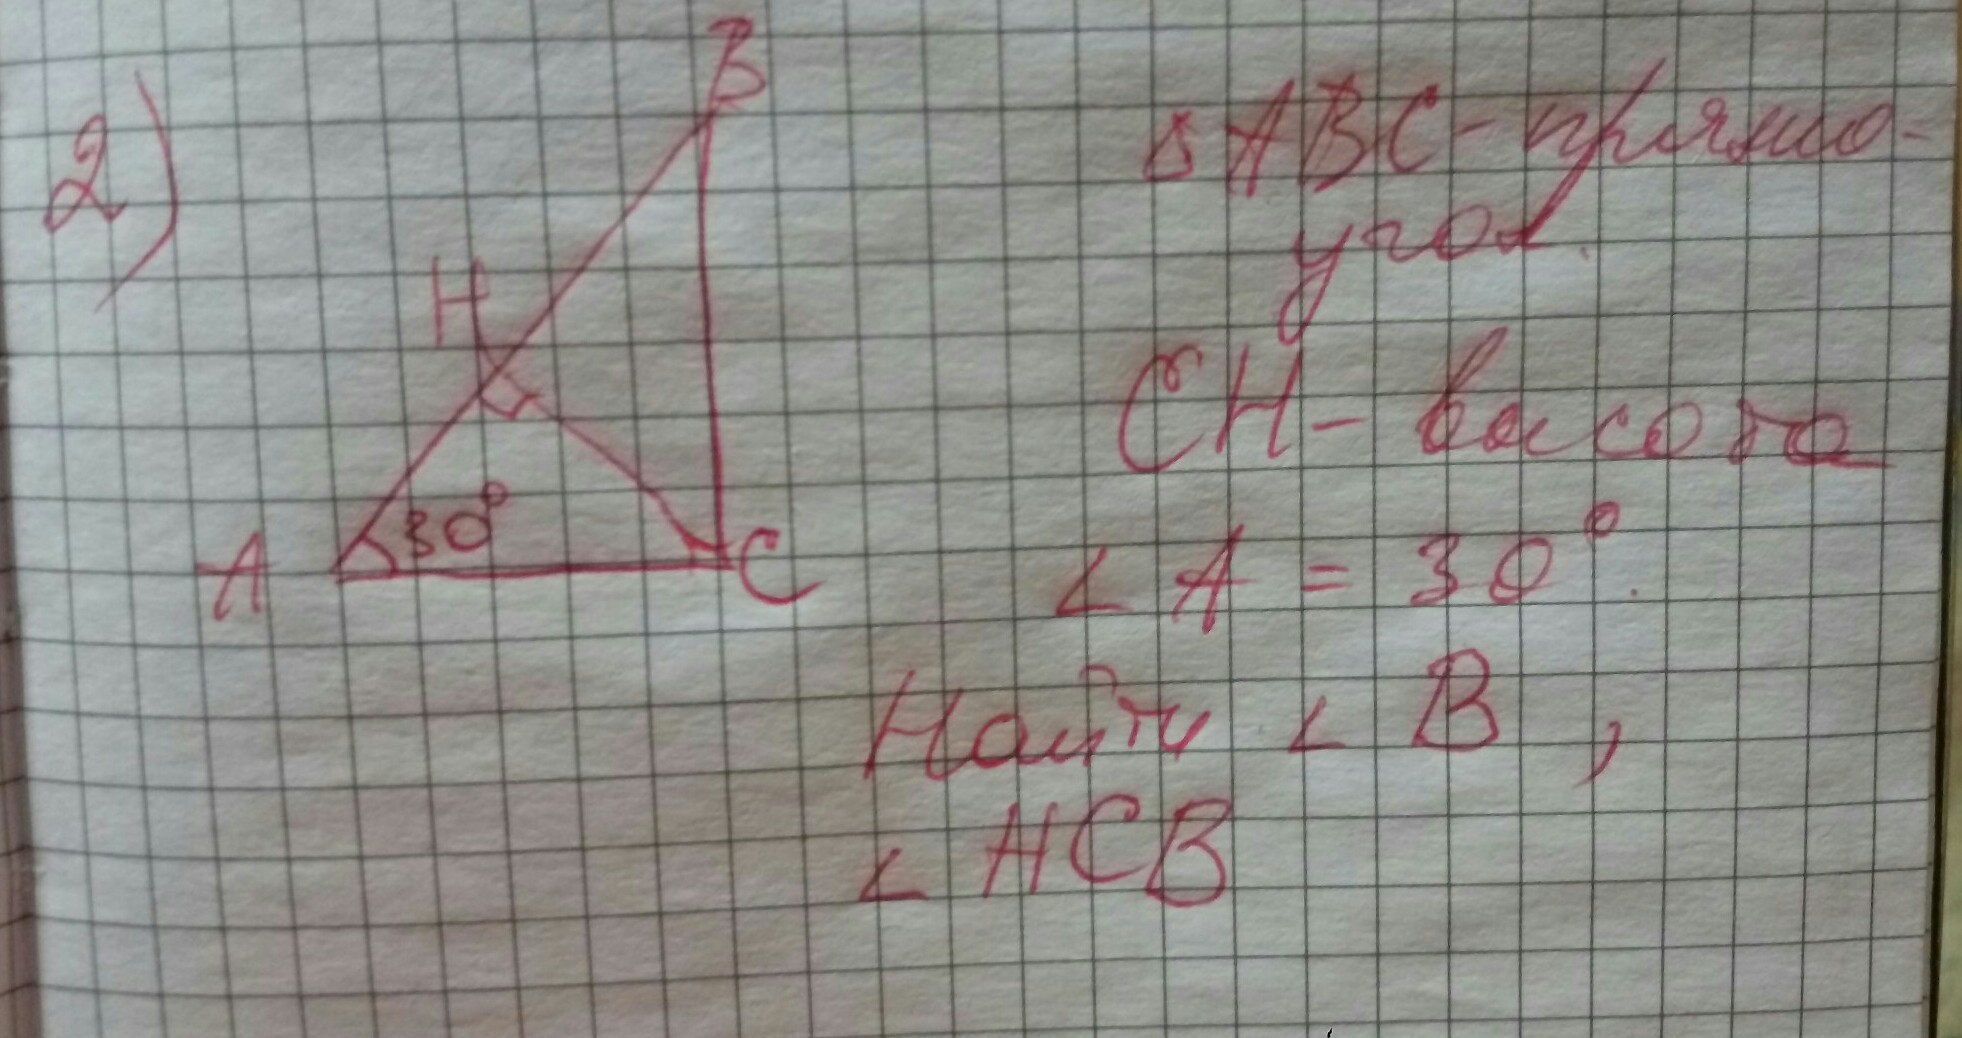 2)
B
H
A
30°
C
△ ABC - прямо-
угол.
CH - высота
∠ A = 30°.
Найти ∠ B ,
∠ HCB